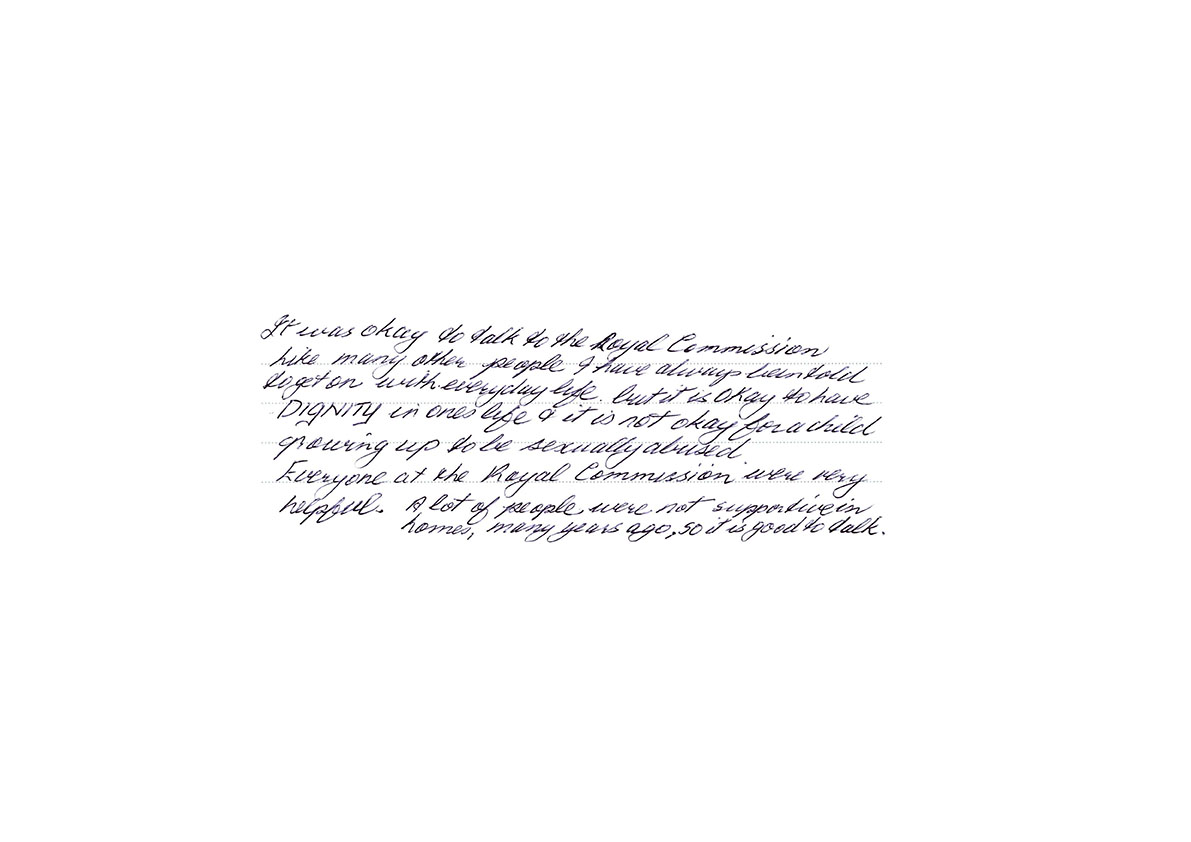 It was okay to talk to the Royal Commission
Like many other people I have always been told
to get on with everyday life. but it is okay to have
DIGNITY in ones life & it is not okay for a child
growing up to be sexually abused
Everyone at the Royal Commission were very
helpful. A lot of people were not supportive in
homes, many years ago, so it is good to talk.